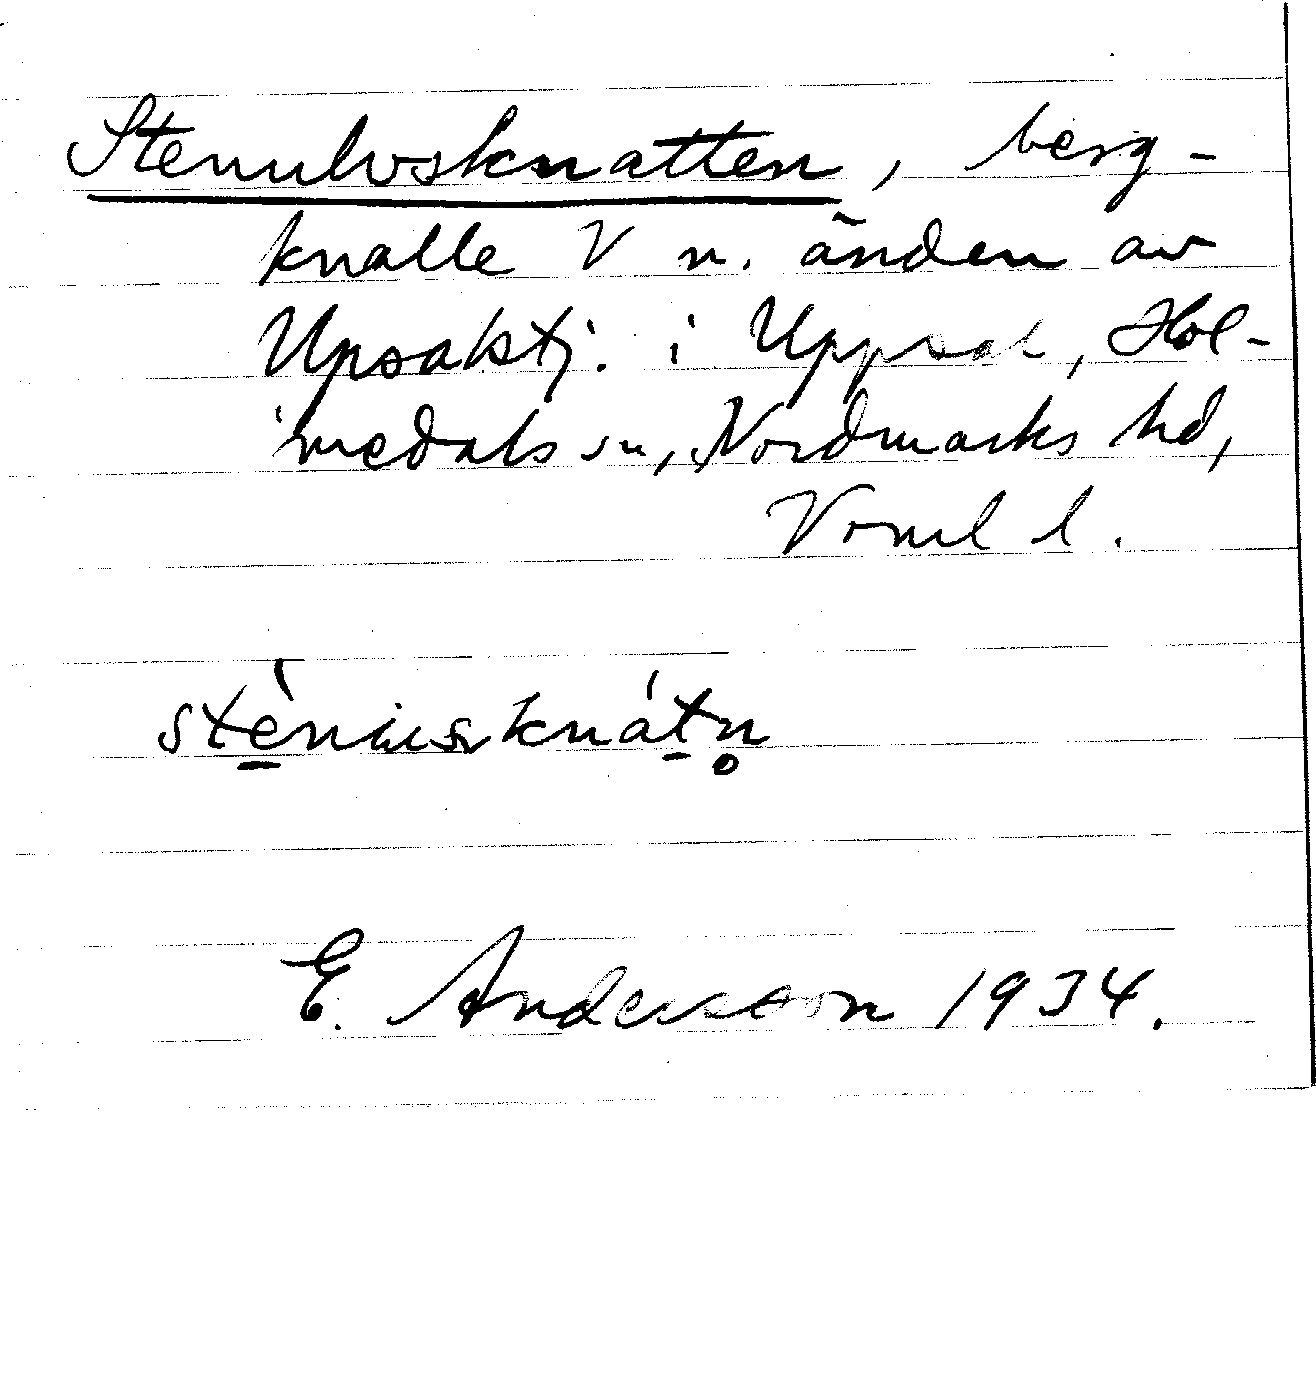 Stenulvsknatten, berg-
knalle V n. änden av
Upsalstj. i Uppsal, Hol-
medals sn, Nordmarks hd,
Vrml l.
E. Andersson 1934.